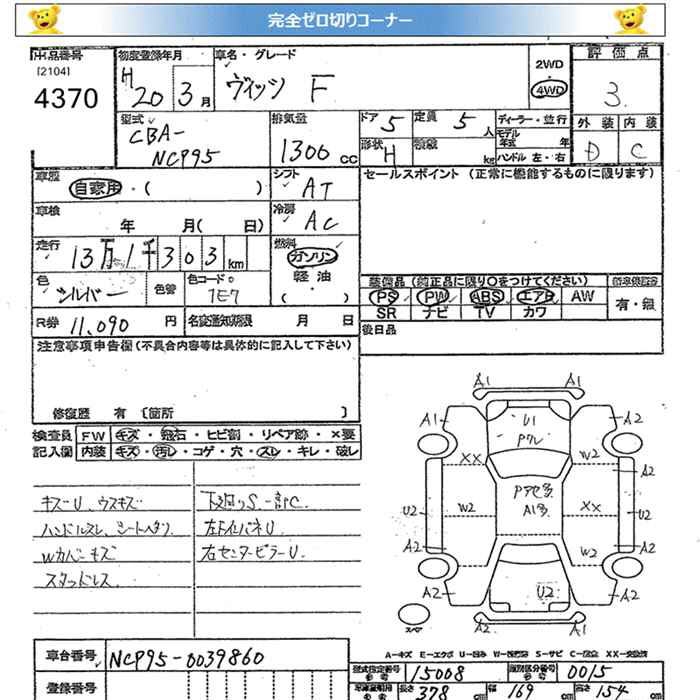 完全ゼロ切りコーナー
出品番号 [2104] 4370
初度登録年月 H20 3月
車名・グレード ヴィッツ F
2WD 4WD
評価点 3.
外装 D 内装 C
型式 CBA-NCP95
排気量 1300cc
ドア 5 形状 H
定員 5人 積載 kg
ディーラー・並行
モデル年式 年
ハンドル 左・右
車歴 自家用・( )
シフト AT
セールスポイント (正常に機能するものに限ります)
車検 年 月( 日)
冷房 AC
走行 13万1千303km
燃料 ガソリン 軽油・( )
色 シルバー 色替 色コード 1E7
装備品 (純正品に限り○をつけてください)
PS PW ABS エアB AW
SR ナビ TV カワ
有・無
R券 11,090円 名変通知期限 月 日
後日品
注意事項申告欄(不具合内容等は具体的に記入して下さい)
修復歴 有 [箇所 ]
検査員記入欄
FW キズ・飛石・ヒビ割・リペア跡・×要
内装 キズ・汚レ・コゲ・穴・スレ・キレ・破レ
キズU、ウスキズ
ハンドルスレ、シートヘタリ
Wカバーキズ
スタッドレス
下廻りS、一部C
左ドアパネU
右センターピラーU
A1 A1
A1 U1 Pクレ A2
XX W2 A2
U2 W2 Pアセ多 A1多 XX U2
A2 W2 A2
A2 U2 A2
A2 A1
スペア
A-キズ E-エクボ U-凹み W-補修跡 S-サビ C-腐食 XX-交換済
車台番号 NCP95-0039860
登録番号
型式指定番号 15008 類別区分番号 0015
長さ 378cm 幅 169cm 高さ 154cm